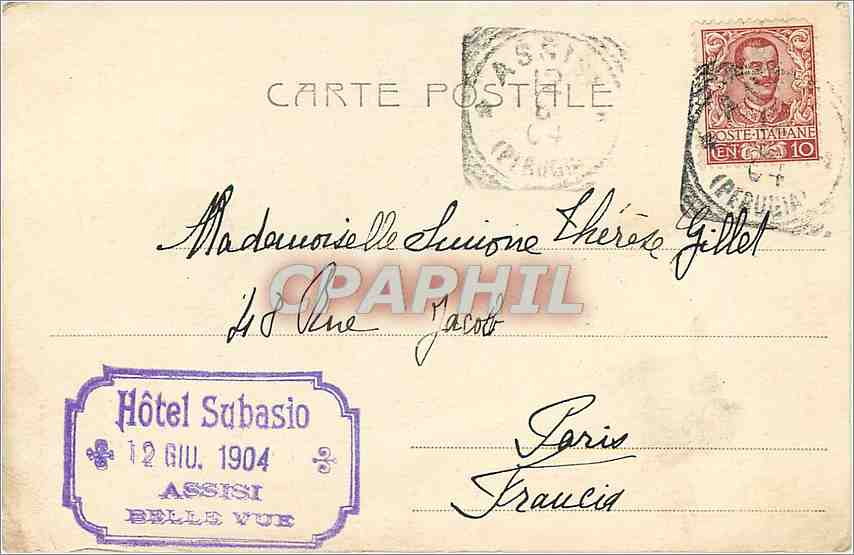 CARTE POSTALE
ASSISI
04
(PERUGIA)
POSTE·ITALIANE
CEN 10
ASSISI
04
(PERUGIA)
Mademoiselle Simone Thérèse Gillet
CPAPHIL
48 Rue Jacob
Paris
Francia
Hôtel Subasio
12 GIU. 1904
ASSISI
BELLE VUE